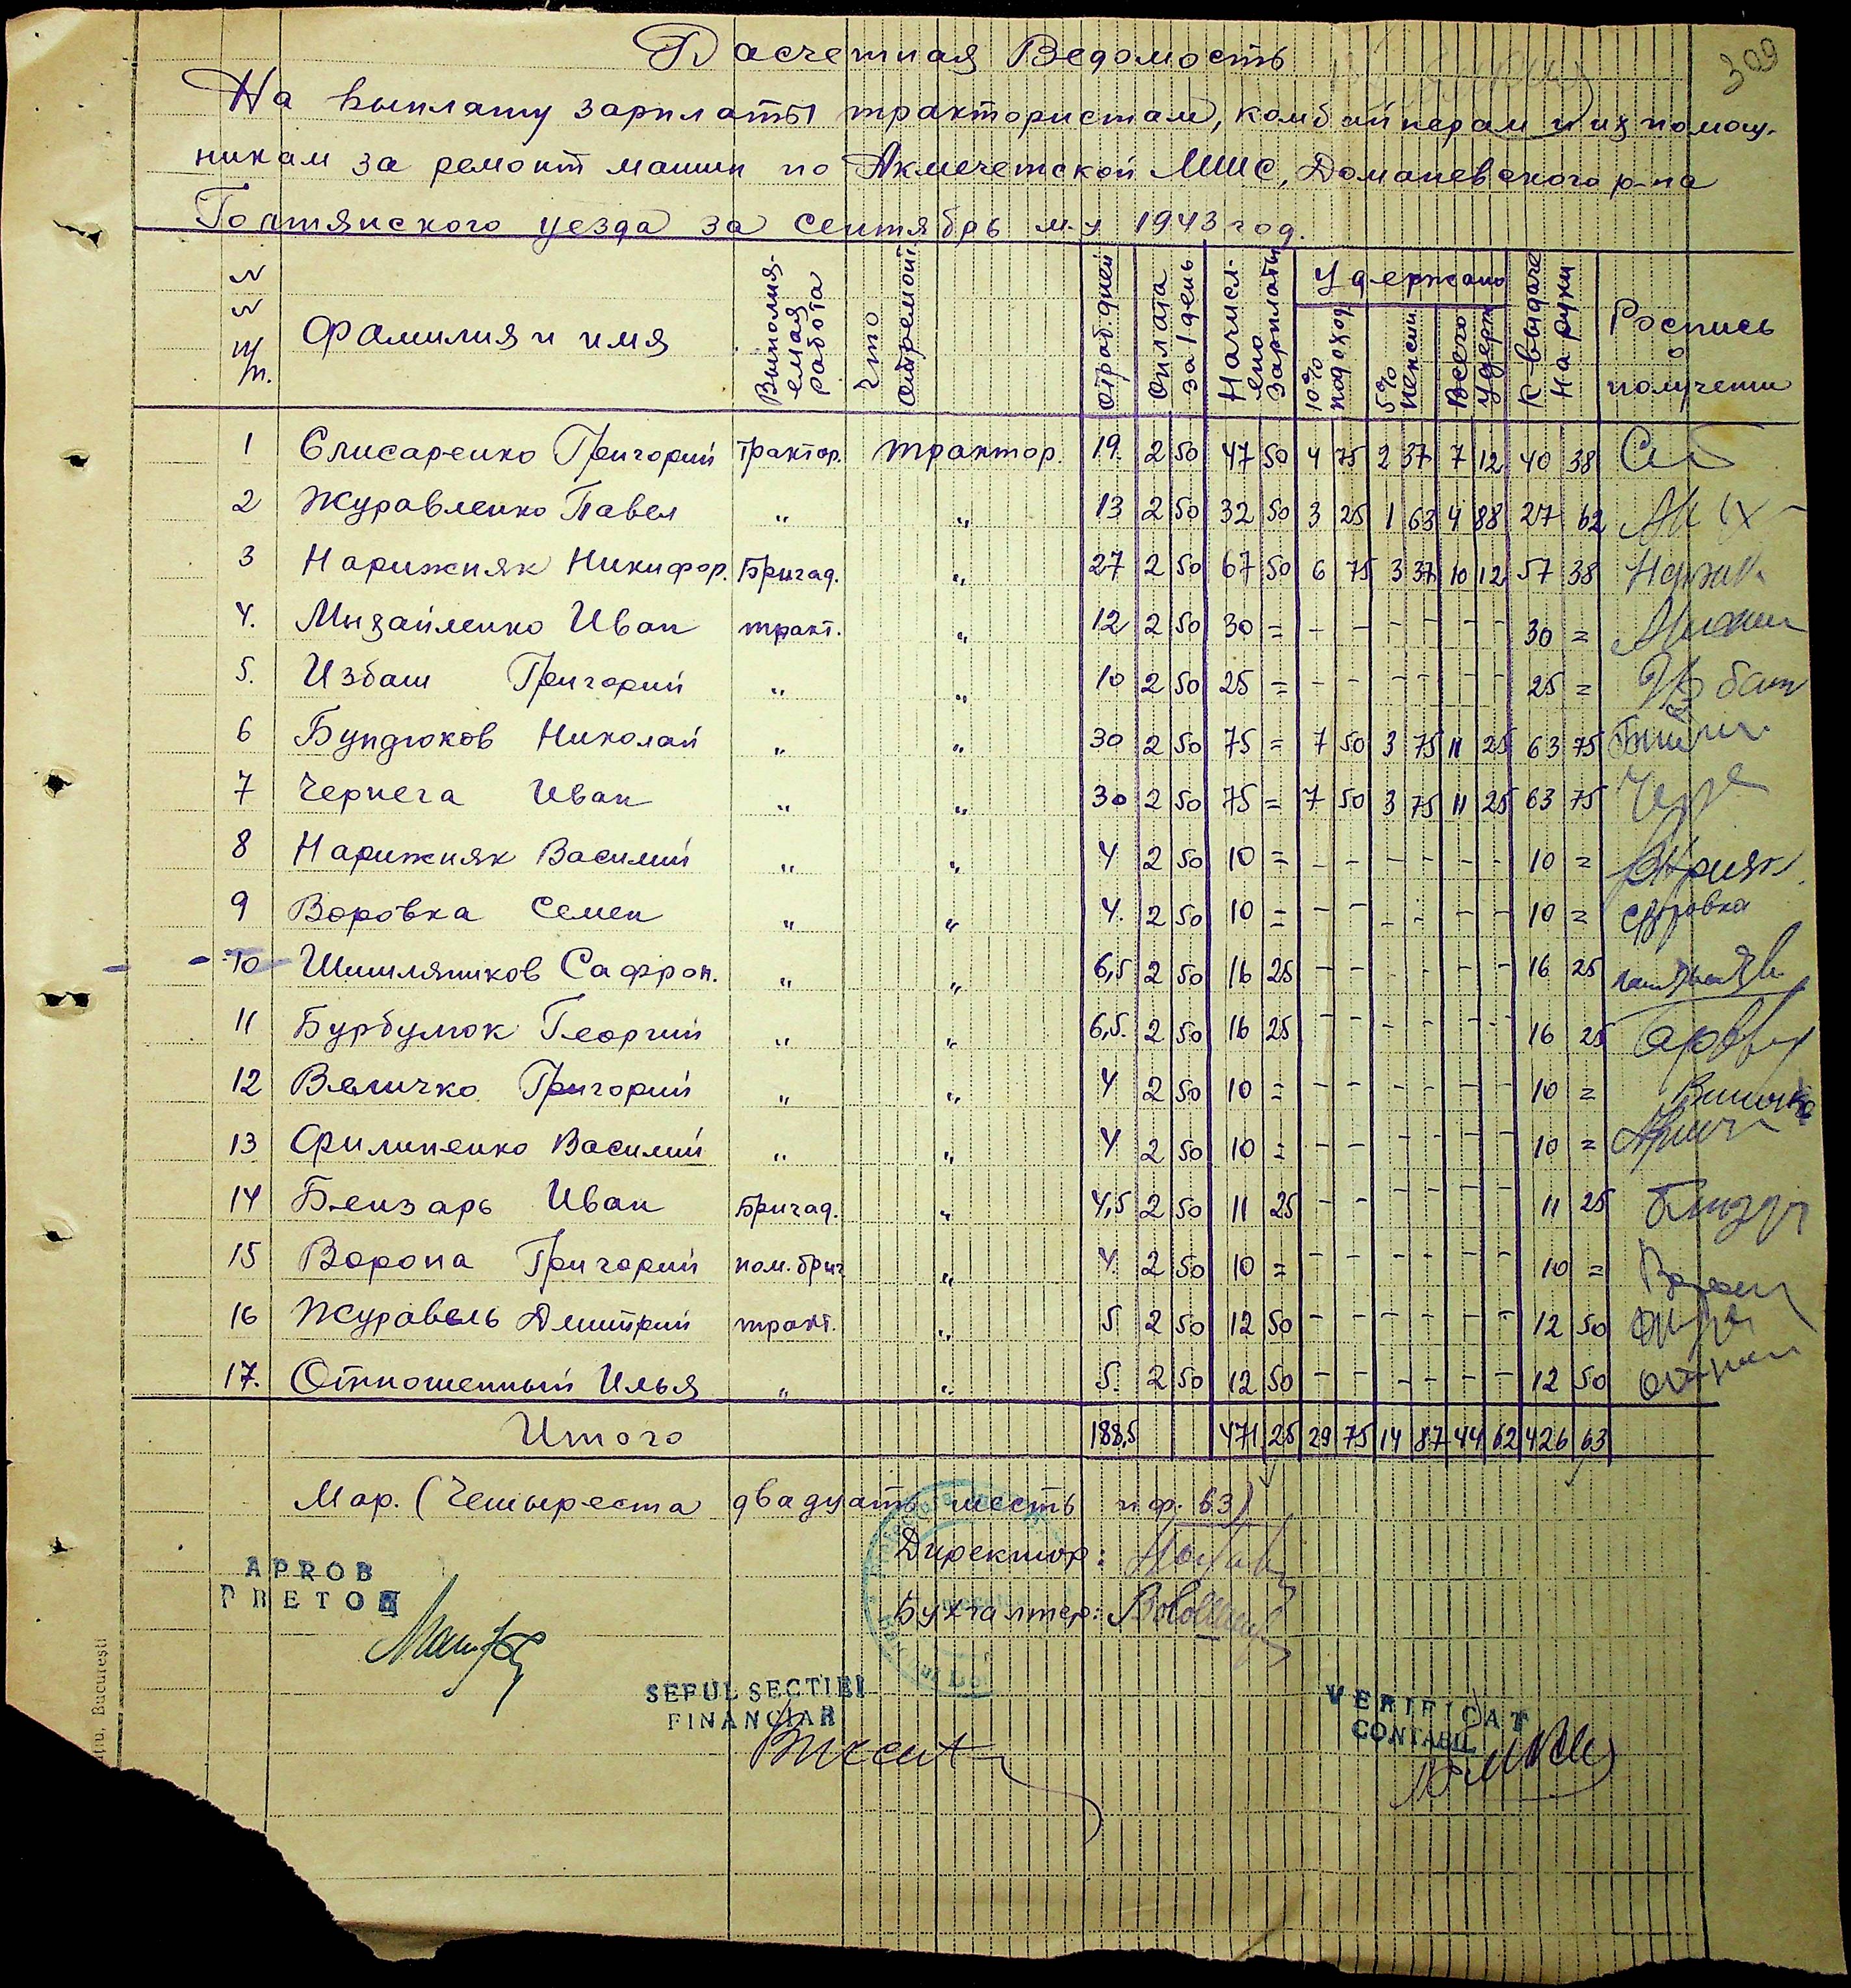 309
Расчетная Ведомость
На выплату зарплаты трактористам, комбайнерам и их помощ-
никам за ремонт машин по Акмечетской МТС, Доманевского р-на
Голтянского уезда за сентябрь м-ц 1943 год.
№ № п/п. Фамилия и имя Выполня-емая работа Что отремонт. Отраб. дней Оплата за 1 день Начисл-ено зарплаты Удержано 10% подоход 5% пенсии Всего удерж К-выдаче На руки Роспись о получении
1 Елисаренко Григорий трактор. трактор. 19. 2 50 47 50 4 75 2 37 7 12 40 38
2 Журавленко Павел " " 13 2 50 32 50 3 25 1 63 4 88 27 62
3 Нарижняк Никифор. Бригад. " 27 2 50 67 50 6 75 3 37 10 12 57 38
4. Михайленко Иван тракт. " 12 2 50 30 = - - - - - - 30 =
5. Избаш Григорий " " 10 2 50 25 = - - - - - - 25 = Избаш
6 Бундюков Николай " " 30 2 50 75 = 7 50 3 75 11 25 63 75
7 Чернега Иван " " 30 2 50 75 = 7 50 3 75 11 25 63 75
8 Нарижняк Василий " " 4 2 50 10 = - - - - - - 10 =
9 Воровка Семен " " 4. 2 50 10 = - - - - - - 10 = СВоровка
10 Шишлянников Сафрон. " " 6,5 2 50 16 25 - - - - - - 16 25
11 Бурбулюк Георгий " " 6,5. 2 50 16 25 - - - - - - 16 25
12 Величко Григорий " " 4 2 50 10 = - - - - - - 10 = Величко
13 Филипенко Василий " " 4 2 50 10 = - - - - - - 10 =
14 Бензарь Иван Бригад. " 4,5 2 50 11 25 - - - - - - 11 25
15 Ворона Григорий пом. бриг " 4. 2 50 10 = - - - - - - 10 =
16 Журавель Дмитрий тракт. " 5 2 50 12 50 - - - - - - 12 50
17. Отношенный Илья " " 5. 2 50 12 50 - - - - - - 12 50
Итого 188,5 471 25 29 75 14 87 44 62 426 63
Мар. (Четыреста двадцать шесть п ф. 63)
Директор:
Бухгалтер:
APROB
PRETOR
SEFUL SECTIEI
FINANCIAR
VERIFICAT
CONTABIL
București